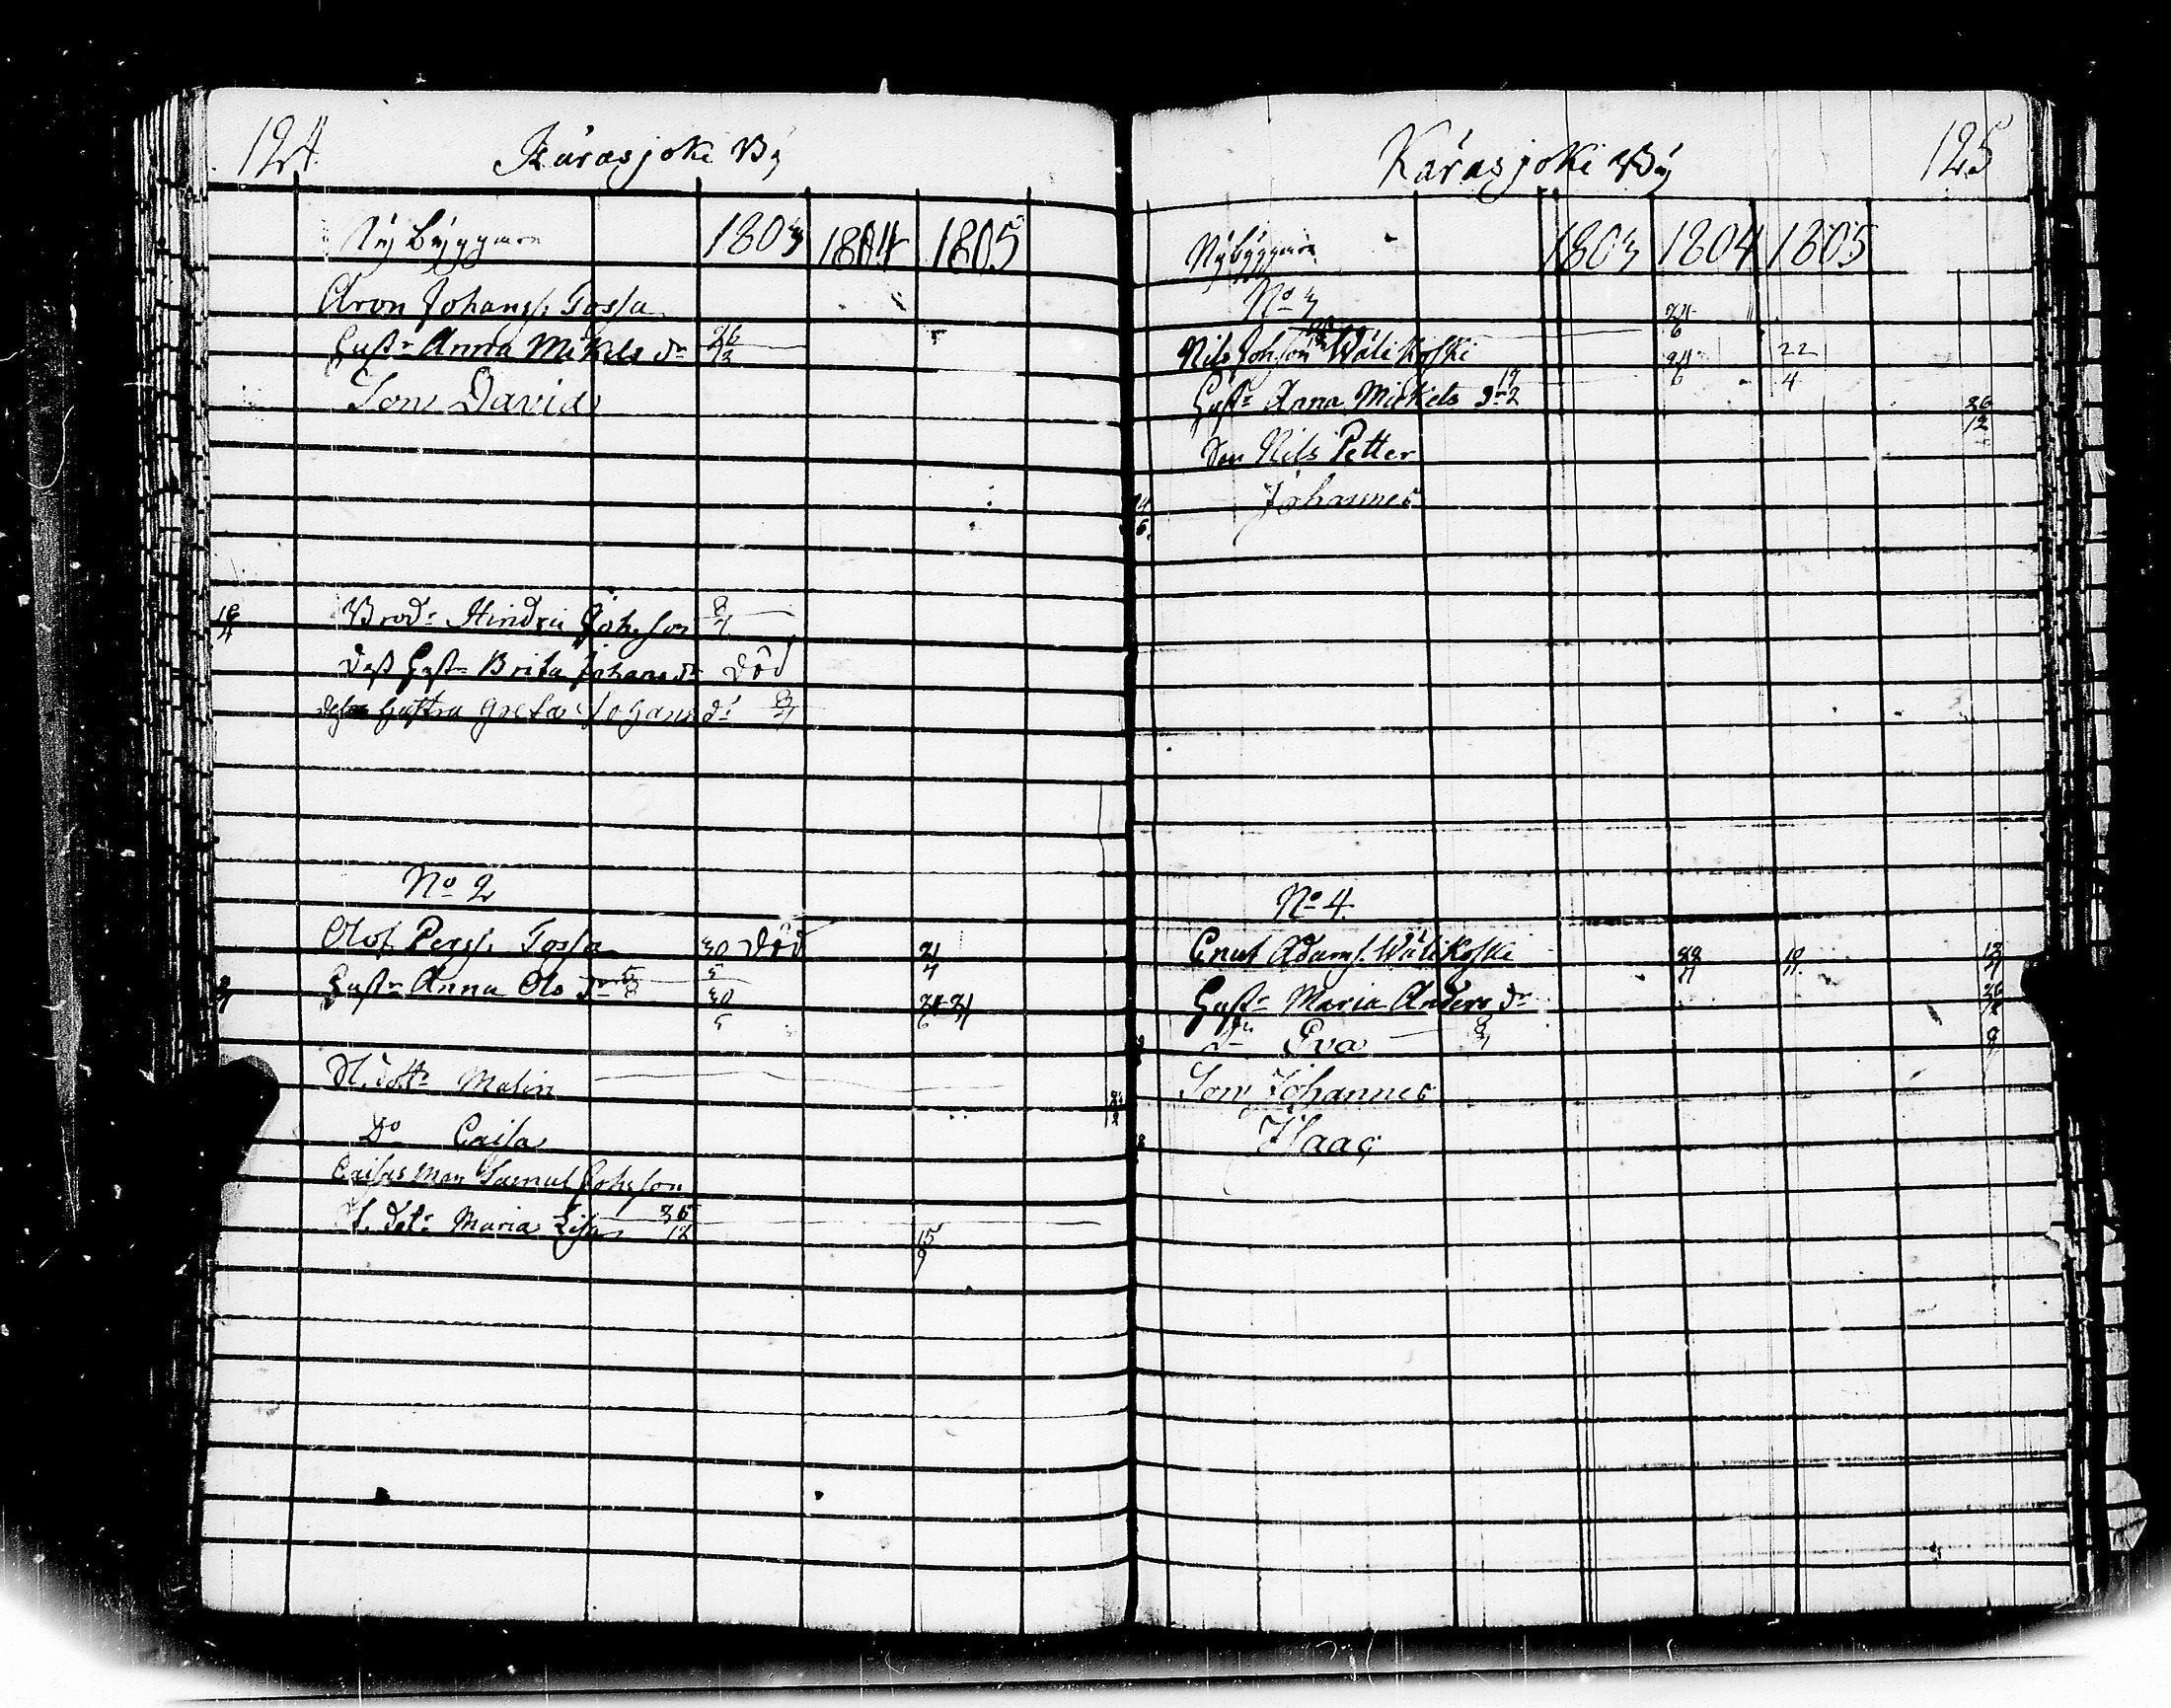 124 Kárasjoki By
Nybyggare 1803 1804 1805
Aron Johanss. Tossa
Hustr. Anna Mickels dr 26/12
Son David
18/4 Brodr. Hindric Johsson 8/4
Dess Hustr. Brita Johans dr död
dess hustru Greta Johans dr 8/4
No 2
Olof Perss. Tossa 30/5 död 21/4
Hustr. Anna Ols dr 30/5
dottr. Malin
Do Caisa
Caisas man Samuel Johsson
dotr. Maria Lisa 26/12 15/9
Kárasjoki By 125
Nybyggare 1803 1804 1805
No 3
Nils Johsson Wälikoski 24/6
Hustr. Anna Mickels dr 24/6 22/4
26/12
Son Nils Petter
Johannes
No 4
Enut Adams. Wälikoski
Hustr. Maria Anders dr
Dr Eva
Son Johannes
Isaac